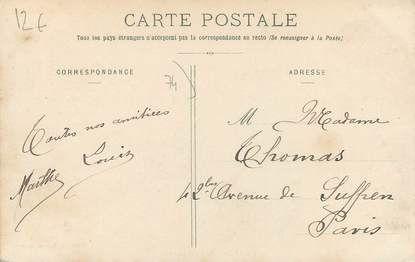 12€
CARTE POSTALE
Tous les pays étrangers n'acceptent pas la correspondance au recto (Se renseigner à la Poste)
CORRESPONDANCE
74
ADRESSE
Toutes nos amitiées
Louis
Marthe
M Madame
Thomas
Avenue de Suffren
Paris